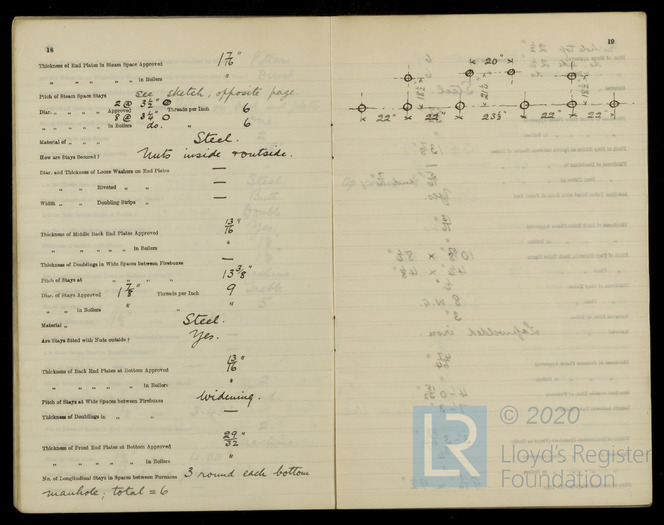 18
Thickness of End Plates in Steam Space Approved 1 7/16"
" " " " " in Boilers "
Pitch of Steam Space Stays See sketch, opposite page.
Diar. " " " " Approved 2 @ 3 1/2" Threads per Inch 6
8 @ 3 1/4"
" " " " in Boilers do. " 6
Material of " " " Steel.
How are Stays Secured? Nuts inside & outside.
Diar. and Thickness of Loose Washers on End Plates —
" " Riveted " " —
Width " " Doubling Strips " —
Thickness of Middle Back End Plates Approved 13/16"
" " " " " in Boilers "
Thickness of Doublings in Wide Spaces between Fireboxes —
Pitch of Stays at " " " " 13 3/8"
Diar. of Stays Approved 1 7/8" Threads per Inch 9
" " in Boilers " " "
Material " Steel.
Are Stays fitted with Nuts outside? Yes.
Thickness of Back End Plates at Bottom Approved 13/16"
" " " " " in Boilers "
Pitch of Stays at Wide Spaces between Fireboxes Widening.
Thickness of Doublings in " " —
Thickness of Front End Plates at Bottom Approved 29/32"
" " " " " in Boilers "
No. of Longitudinal Stays in Spaces between Furnaces 3 round each bottom
manhole; total = 6
19
20"
18 1/2" 21 1/2" 18 1/2"
22" 22" 23 1/2" 22" 22"
LR
© 2020
Lloyd's Register
Foundation